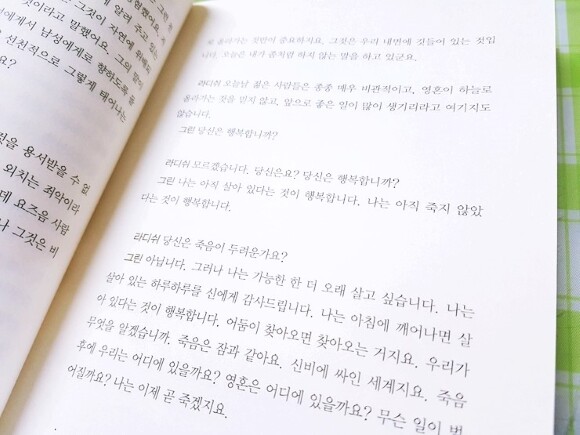 것이라고 말했어요. 그의 말이
에게서 남성에게로 향하도록
선천적으로 그렇게 태어나는
요?
것을 용서받을 수 없
외치는 죄악이라
데 요즈음 사람
나 그것은 비
올라가는 것만이 중요하지요. 그것은 우리 내면에 것들어 있는 것입
니다. 오늘은 내가 좀처럼 하지 않는 말을 하고 있군요.
라디쉬 오늘날 젊은 사람들은 종종 매우 비관적이고, 영혼이 하늘로
올라가는 것을 믿지 않고, 앞으로 좋은 일이 많이 생기리라고 여기지도
않습니다.
그린 당신은 행복합니까?
라디쉬 모르겠습니다. 당신은요? 당신은 행복합니까?
그린 나는 아직 살아 있다는 것이 행복합니다. 나는 아직 죽지 않았
다는 것이 행복합니다.
라디쉬 당신은 죽음이 두려운가요?
그린 아닙니다. 그러나 나는 가능한 한 더 오래 살고 싶습니다. 나는
살아 있는 하루하루를 신에게 감사드립니다. 나는 아침에 깨어나면 살
아 있다는 것이 행복합니다. 어둠이 찾아오면 찾아오는 거지요. 우리가
무엇을 알겠습니까. 죽음은 잠과 같아요. 신비에 싸인 세계지요. 죽음
후에 우리는 어디에 있을까요? 영혼은 어디에 있을까요? 무슨 일이 벌
어질까요? 나는 이제 곧 죽겠지요.